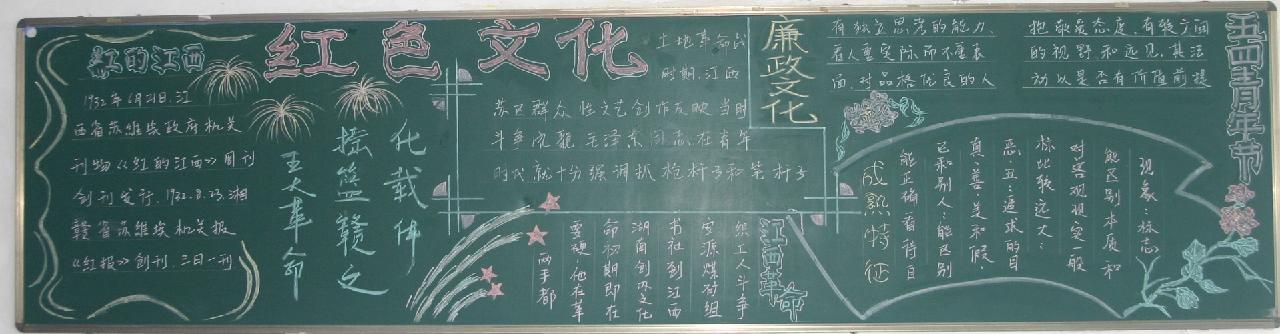 红的江西
1932年6月21日,江
西省苏维埃政府机关
刊物《红的江西》周刊
创刊发行.1932.8.23.湘
赣省苏维埃机关报
《红报》创刊.三日一刊
红色文化
化载体
摇篮赣文
王大革命
土地革命战
时期,江西
苏区群众性文艺创作反映当时
斗争优龍 毛泽东同志在青年
时代就十分强调抓枪杆子和笔杆子
江西革命
织工人斗争
安源煤对组
书社到江西
湖南创办文化
命初期即在
要硬他在革
两手都
廉政文化
有独立思考的能力、
看人重实际而不重表
面.对品格优良的人
抱敬爱态度.有较广阔
的视野和远见.其活
动以是否有所值前提
五四青年节
现象:标志
能区别本质和
对客观现实一般
标比较远大:
恶五:追求的目
真善美和假、
己和别人:能区别
能正确看待自
成熟特征